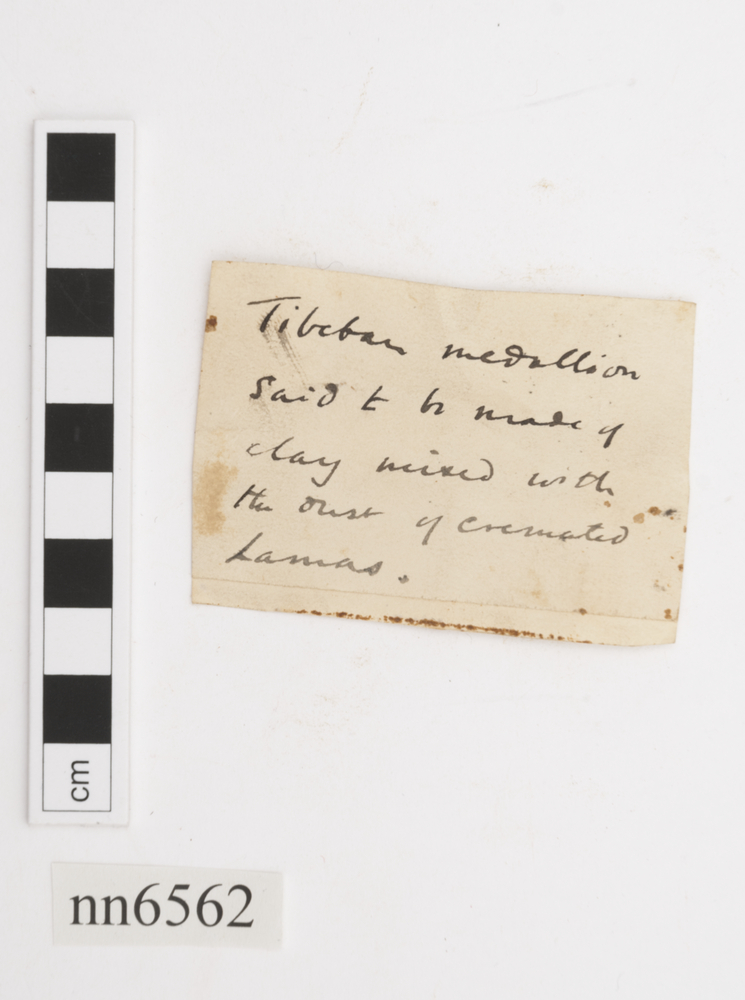 Tibetan medallion
said to be made of
clay mixed with
the dust of cremated
Lamas.
cm
nn6562